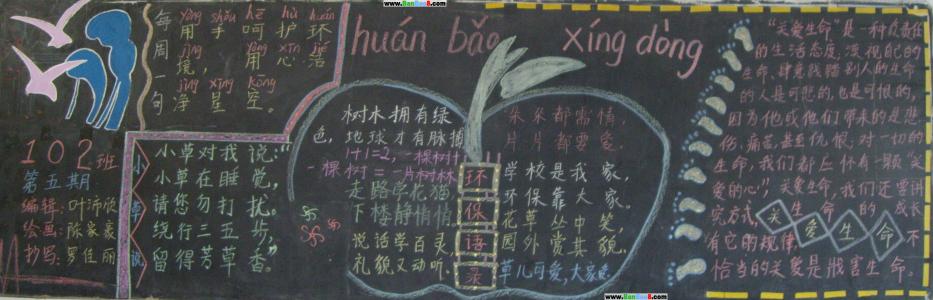 www.BanBaoB.com
每周一句
yòng shǒu hē hù huán
用手呵护环
jìng yòng xīn jié
境，用心洁
jìng xīng kōng
净星空。
huán bǎo xíng dòng
102班
第五期
编辑：叶沛欣
绘画：陈家豪
抄写：罗佳丽
小草说
小草对我说："
小草在睡觉，
请您勿打扰。
绕行三五步，
留得芳草香。"
树木拥有绿
色，地球才有脉搏
1+1=2，一棵树+
一棵树=一片树林
走路学花猫
下楼静悄悄
说话学百灵
礼貌又动听
环保语录
朵朵都需情，
片片都要爱。
学校是我家，
环保靠大家。
花草丛中笑，
园外赏其貌。
草儿可爱，大家
"关爱生命"是一种负责任
的生活态度，漠视自己的
生命，肆意践踏别人的生命
的人是可悲的，也是可恨的，
因为他或他们带来的是悲
伤、痛苦甚至仇恨；对一切的
生命，我们都应怀有一颗"关
爱的心"，关爱生命，我们还要讲
究方式，关爱生命的成长
有它的规律，不
恰当的关爱是戕害生命。
关爱生命
www.BanBaoB.com